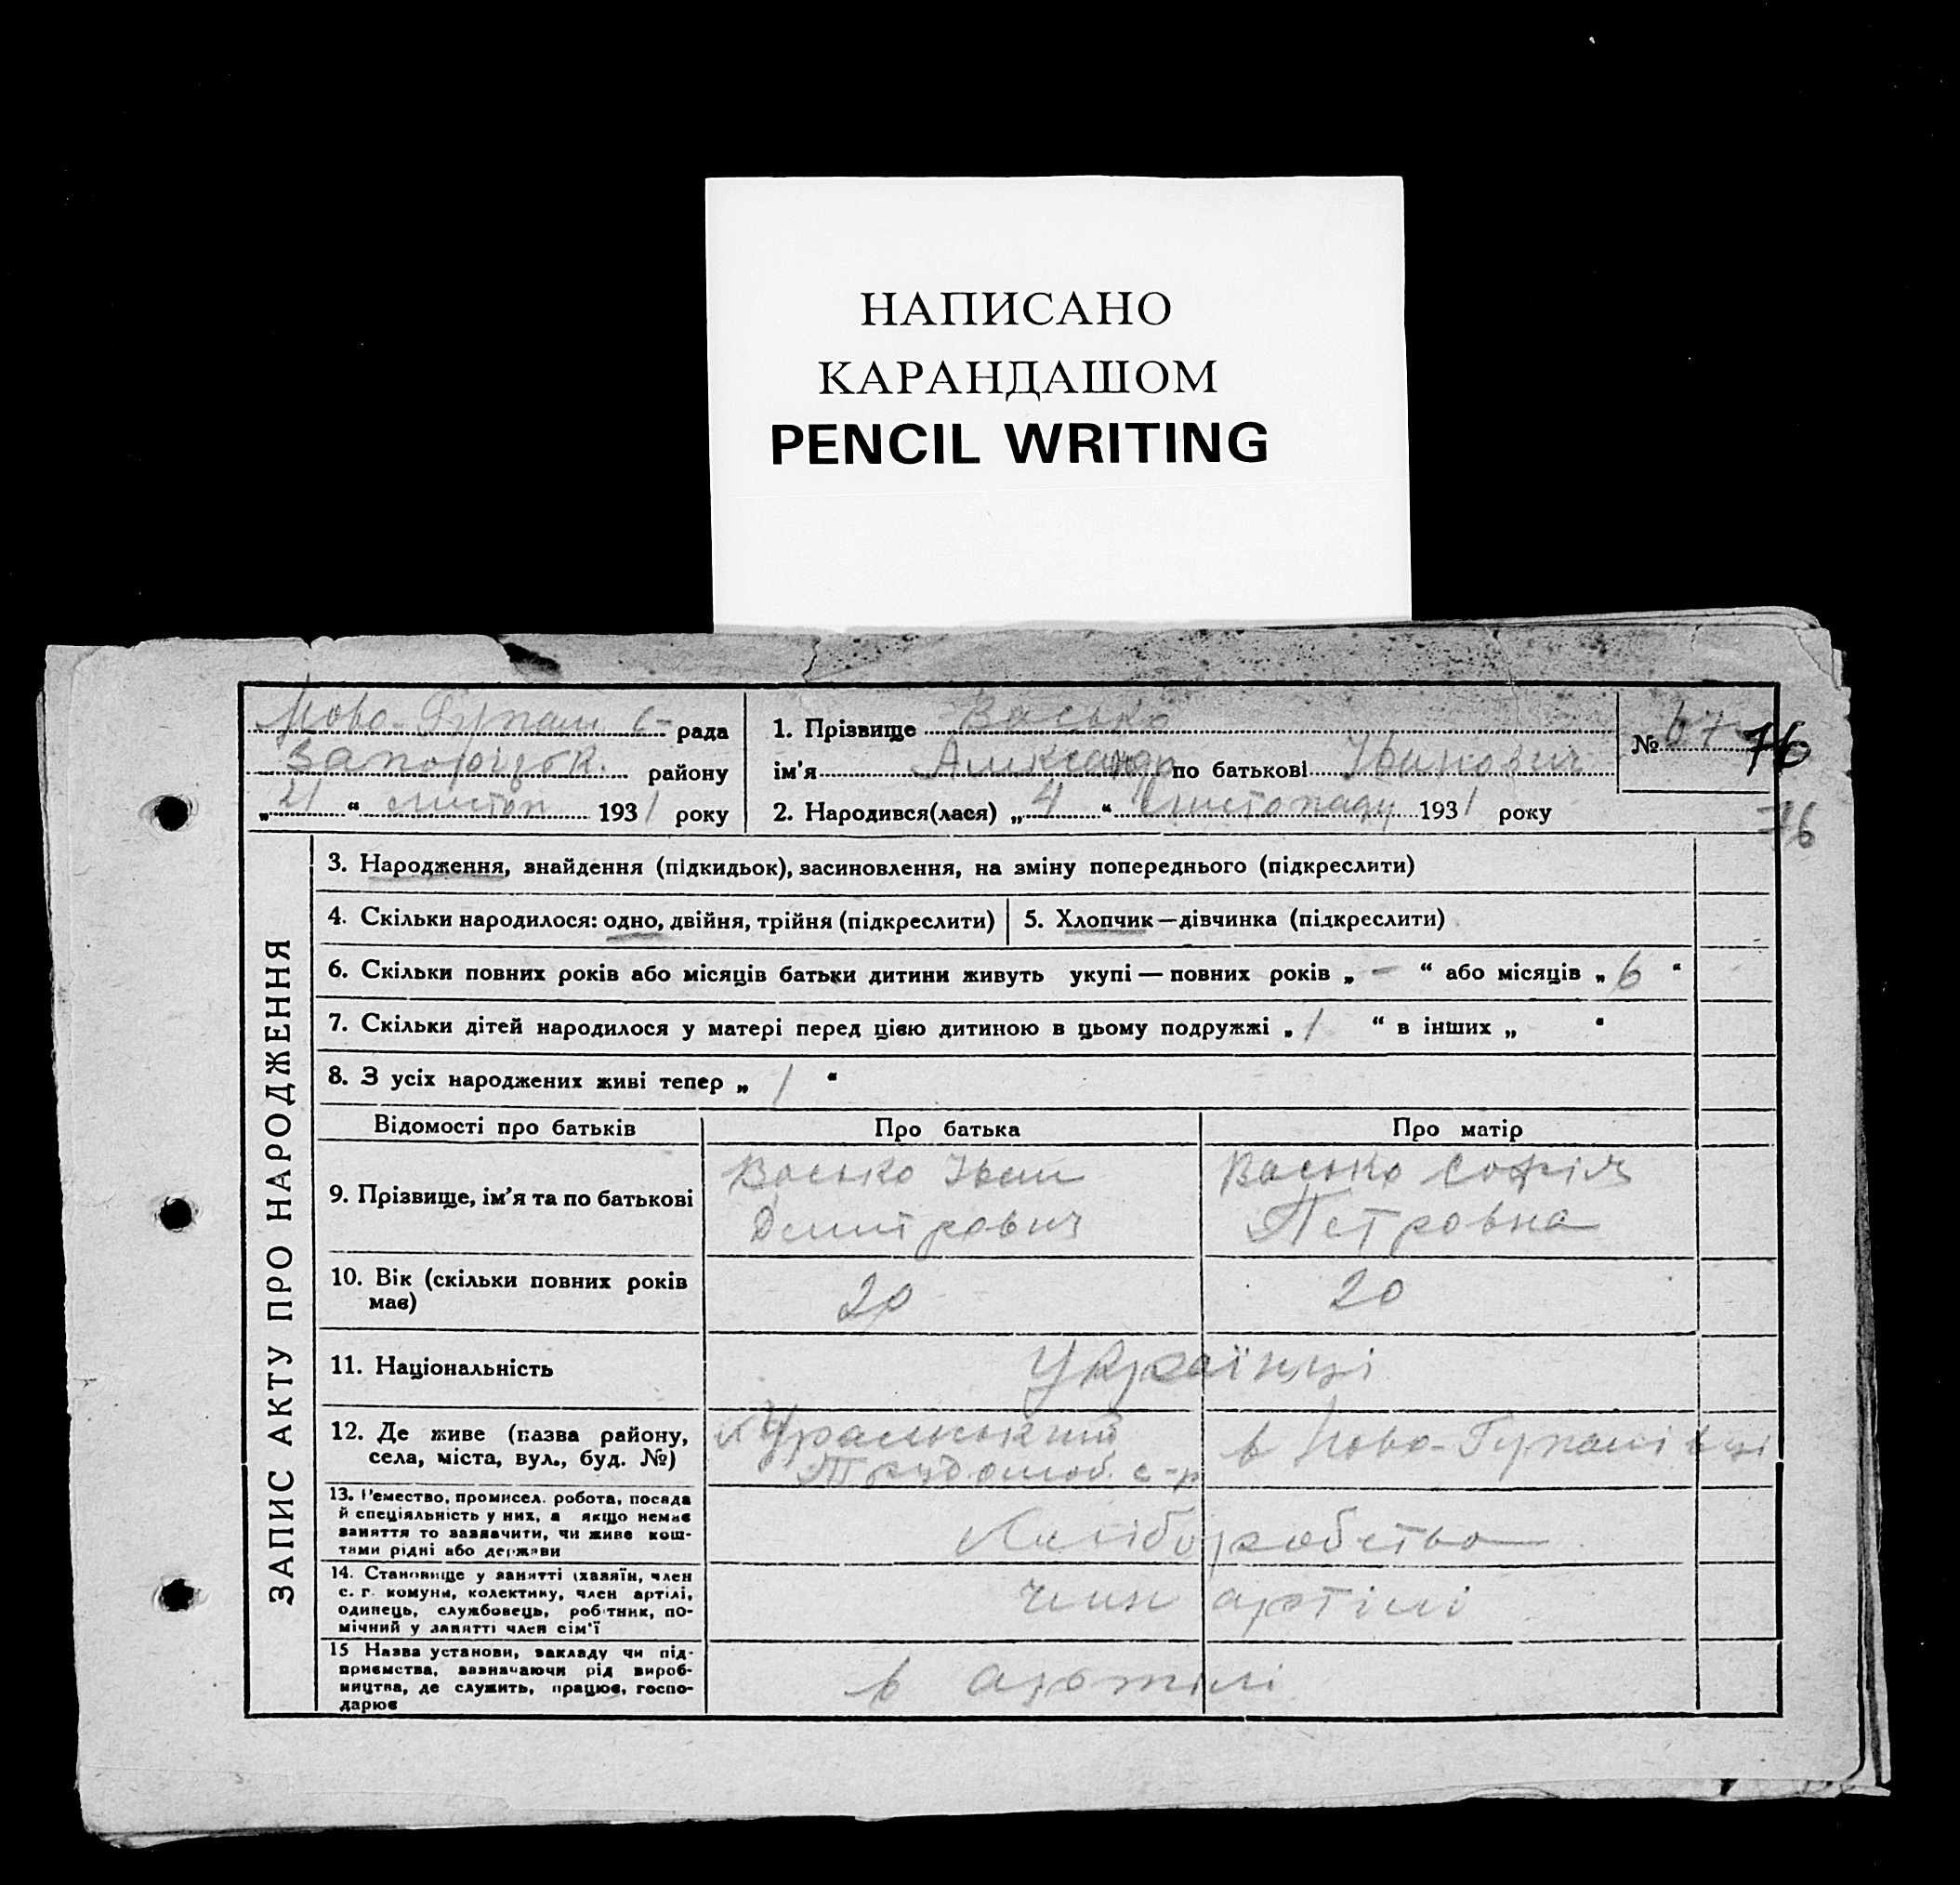 НАПИСАНО
КАРАНДАШОМ
PENCIL WRITING
Ново-Гупал с-рада
Запоріцьк. району
„21“ листоп 1931 року
1. Прізвище Васько
ім'я Александр по батькові Іванович
2. Народився(лася) „4“ листопаду 1931 року
№ 67
76
76
ЗАПИС АКТУ ПРО НАРОДЖЕННЯ
3. Народження, знайдення (підкидьок), засиновлення, на зміну попереднього (підкреслити)
4. Скільки народилося: одно, двійня, трійня (підкреслити)
5. Хлопчик—дівчинка (підкреслити)
6. Скільки повних років або місяців батьки дитини живуть укупі — повних років „ - “ або місяців „ 6 “
7. Скільки дітей народилося у матері перед цією дитиною в цьому подружжі „ 1 “ в інших „ “
8. З усіх народжених живі тепер „ 1 “
Відомості про батьків
Про батька
Про матір
9. Прізвище, ім'я та по батькові
Васько Іван
Дмитрович
Васько Софія
Петровна
10. Вік (скільки повних років
має)
20
20
11. Національність
Українці
12. Де живе (назва району,
села, міста, вул., буд. №)
Уральський
с-р
в Ново-Гупалівці
13. Ремество, промисел, робота, посада
й спеціяльність у них, а якщо немає
заняття то зазначити, чи живе кош-
тами рідні або держави
Хліборобство
14. Становище у занятті (хазяїн, член
с. г. комуни, колективу, член артілі,
одинець, службовець, робітник, по-
мічний у занятті член сім'ї
член артілі
15 Назва установи, закладу чи під-
приємства, зазначаючи рід вироб-
ництва, де служить, працює, госпо-
дарює
в артілі